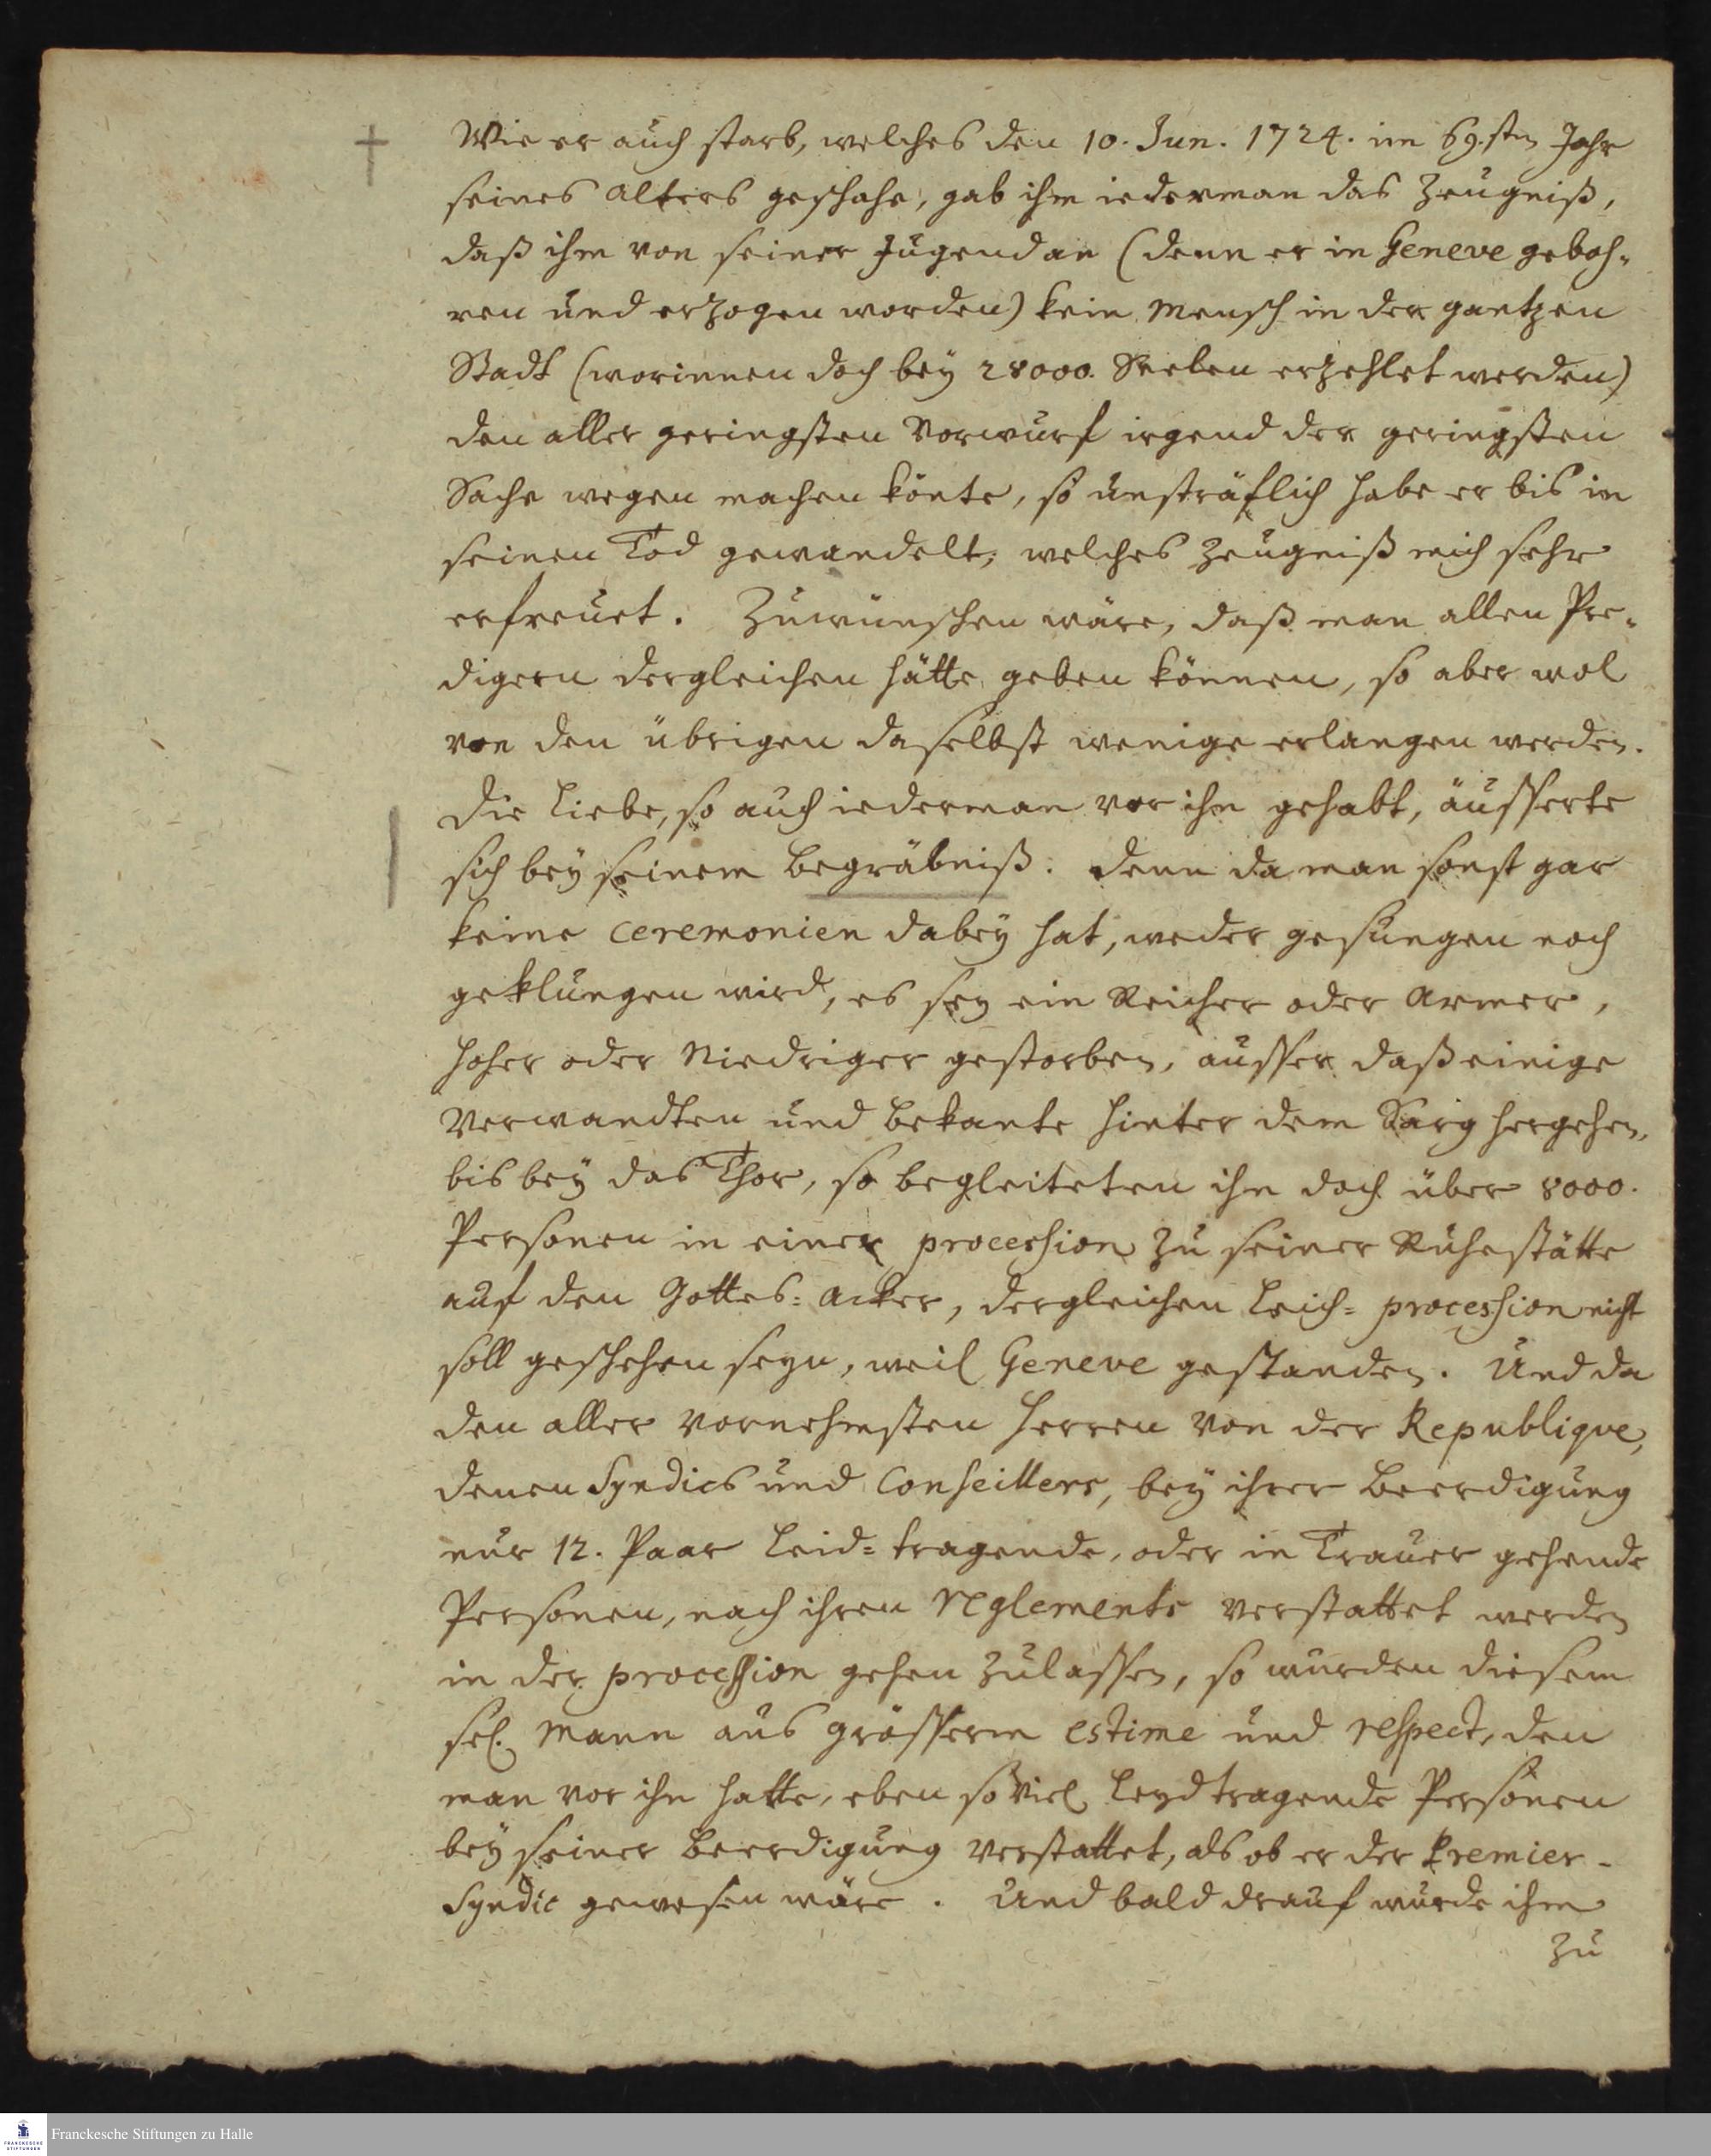 Wie er auch starb, welches den 10. Jun. 1724. im 69.sten Jahr
seines Alters geschahe, gab ihm iederman das Zeugniß,
daß ihm von seiner Jugend an (denn er in Geneve geboh-
ren und erzogen worden) kein Mensch in der gantzen
Stadt (worinnen doch bey 28000. Seelen erzehlet werden)
den aller geringsten Vorwurf irgend der geringsten
Sache wegen machen könte, so unsträflich habe er bis in
seinen Tod gewandelt, welches Zeugniß mich sehr
erfreuet. Zuwünschen wäre, daß man allen Pre-
digern dergleichen hätte geben können, so aber wol
von den übrigen daselbst wenige erlangen werden.
Die Liebe, so auch iederman vor ihn gehabt, äusserte
sich bey seinem Begräbniß. Denn da man sonst gar
keine Ceremonien dabey hat, weder gesungen noch
geklungen wird, es sey ein Reicher oder Armer,
Hoher oder Niedriger gestorben, ausser daß einige
Verwandten und Bekante hinter dem Sarg hergehen,
bis bey das Thor, so begleiteten ihn doch über 8000.
Personen in einer procession zu seiner Ruhestätte
auf den Gottes=Acker, dergleichen Leich=procession nicht
soll geschehen seyn, weil Geneve gestanden. Und da
den aller vornehmsten Herren von der Republique,
denen Syndics und Conseillers, bey ihrer Beerdigung
nur 12. Paar Leid=tragende, oder in Trauer gehende
Personen, nach ihren Reglements verstattet werden
in der procession gehen zulassen, so wurden diesem
sel. Mann aus grösserm estime und respect, den
man vor ihn hatte, eben so viel Leydtragende Personen
bey seiner Beerdigung verstattet, als ob er der Premier-
Syndic gewesen wäre. Und bald drauf wurde ihm
zu
Franckesche Stiftungen zu Halle